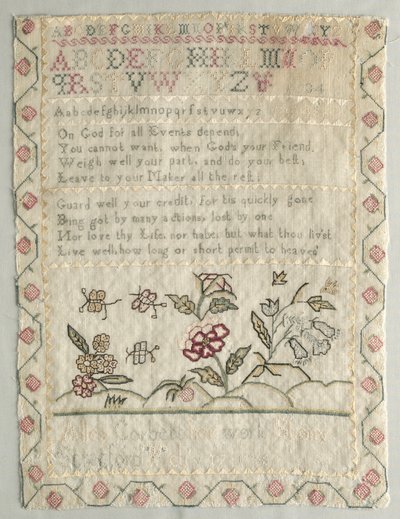 ABCDEFGHIKLMNOPQRSTVWXYZ
ABCDEFGHIKLMNOP
QRSTVWXYZ& 34
Aabcdefghijklmnopqrſstuvwxyz
On God for all Events depend;
You cannot want, when God's your Friend.
Weigh well your part, and do your best;
Leave to your Maker all the rest;
Guard well your credit, for tis quickly gone
Being got by many actions, lost by one
Nor love thy Life, nor hate, but what thou liv'st
Live well, how long or short permit to heaven
Corbett her work